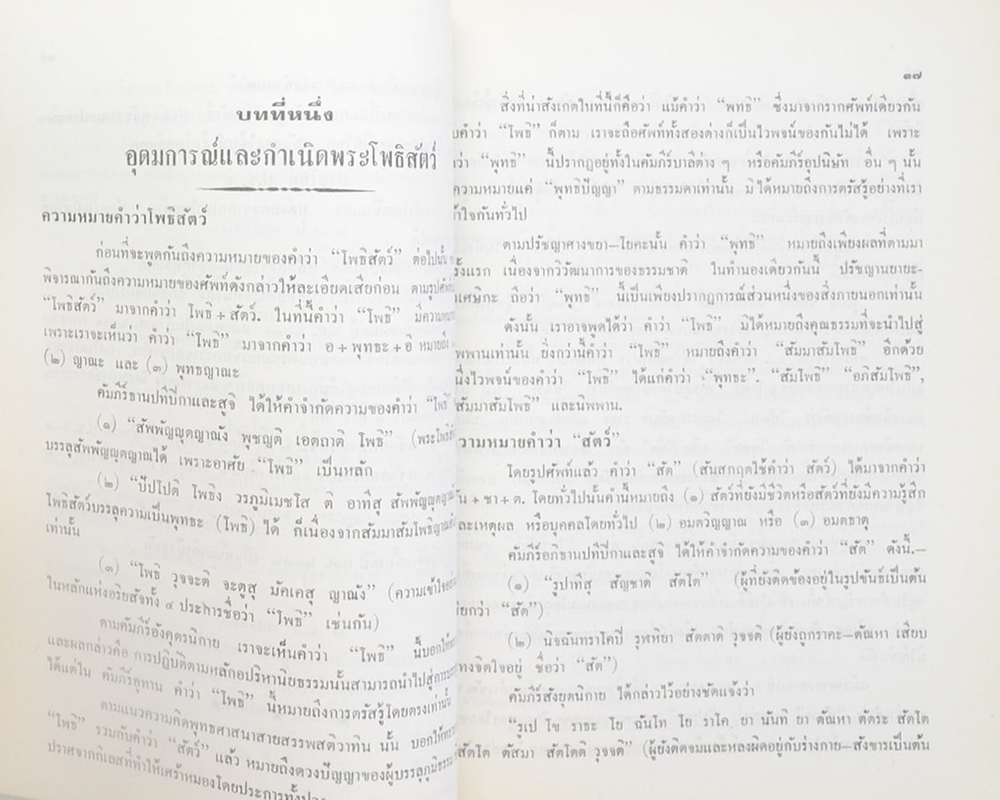 บทที่หนึ่ง
อุดมการณ์และกำเนิดพระโพธิสัตว์
ความหมายคำว่าโพธิสัตว์
ก่อนที่จะพูดกันถึงความหมายของคำว่า “โพธิสัตว์” ต่อไปนั้น
พิจารณากันถึงความหมายของศัพท์ดังกล่าวให้ละเอียดเสียก่อน ตามรูปศัพท์
“โพธิสัตว์” มาจากคำว่า โพธิ + สัตว์. ในที่นี้คำว่า “โพธิ” มีความ
เพราะเราจะเห็นว่า คำว่า “โพธิ” มาจากคำว่า อ + พุทธะ + อิ หมายถึง
(๒) ญาณะ และ (๓) พุทธญาณะ
คัมภีร์ธานปทีปิกาและสูจิ ได้ให้คำจำกัดความของคำว่า “โพธิ”
(๑) “สัพพัญญุตญาณัง พุชญติ เอตถาติ โพธิ” (พระโพธิ
บรรลุสัพพัญญุตญาณได้ เพราะอาศัย “โพธิ” เป็นหลัก
(๒) “ปัปโปติ โพธิง วรภูมิเมชโส ติ อาทีสุ สัพพัญญุตญาณ
โพธิสัตว์บรรลุความเป็นพุทธะ (โพธิ) ได้ ก็เนื่องจากสัมมาสัมโพธิญาณ
เท่านั้น
(๓) “โพธิ วุจจะติ จะตูสุ มัคเคสุ ญาณัง” (ความเข้าใจ
ในหลักแห่งอริยสัจทั้ง ๔ ประการชื่อว่า “โพธิ” เช่นกัน)
ตามคัมภีร์อังคุตรนิกาย เราจะเห็นคำว่า “โพธิ” นี้บอกให้
และผลกล่าวคือ การปฏิบัติตามหลักอปริหานิยธรรมนั้นสามารถนำไปสู่การ
ได้แต่ใน คัมภีร์อุทาน คำว่า “โพธิ” นี้หมายถึงการตรัสรู้โดยตรงเท่านั้น
ตามแนวความคิดพุทธศาสนาสายสรรพสติวาทิน นั้น บอกให้
“โพธิ” รวมกับคำว่า “สัตว์” แล้ว หมายถึงดวงปัญญาของผู้บรรลุภูมิธรรม
ปราศจากกิเลสที่ทำให้เศร้าหมองโดยประการทั้งปวง
๓๗
สิ่งที่น่าสังเกตในที่นี้ก็คือว่า แม้คำว่า “พุทธิ” ซึ่งมาจากรากศัพท์เดียวกัน
คำว่า “โพธิ” ก็ตาม เราจะถือศัพท์ทั้งสองต่างก็เป็นไวพจน์ของกันไม่ได้ เพราะ
ว่า “พุทธิ” นี้ปรากฏอยู่ทั้งในคัมภีร์บาลีต่าง ๆ หรือคัมภีร์อุปนิษัท อื่น ๆ นั้น
ความหมายแค่ “พุทธิปัญญา” ตามธรรมดาเท่านั้น มิได้หมายถึงการตรัสรู้อย่างที่เรา
ใจกันทั่วไป
ตามปรัชญาศางขยา–โยคะนั้น คำว่า “พุทธิ” หมายถึงเพียงผลที่ตามมา
ครั้งแรก เนื่องจากวิวัฒนาการของธรรมชาติ ในทำนองเดียวกันนี้ ปรัชญานยายะ-
เศษิกะ ถือว่า “พุทธิ” นี้เป็นเพียงปรากฏการณ์ส่วนหนึ่งของสิ่งภายนอกเท่านั้น
ดังนั้น เราอาจพูดได้ว่า คำว่า “โพธิ” มิได้หมายถึงคุณธรรมที่จะนำไปสู่
พพานเท่านั้น ยิ่งกว่านี้คำว่า “โพธิ” หมายถึงคำว่า “สัมมาสัมโพธิ” อีกด้วย
ซึ่งไวพจน์ของคำว่า “โพธิ” ได้แก่คำว่า “พุทธะ”. “สัมโพธิ” “อภิสัมโพธิ”,
สัมมาสัมโพธิ” และนิพพาน.
ความหมายคำว่า “สัตว์”
โดยรูปศัพท์แล้ว คำว่า “สัต” (สันสกฤตใช้คำว่า สัตว์) ได้มาจากคำว่า
สัน + ชา + ต. โดยทั่วไปนั้นคำนี้หมายถึง (๑) สัตว์ที่ยังมีชีวิตหรือสัตว์ที่ยังมีความรู้สึก
และเหตุผล หรือบุคคลโดยทั่วไป (๒) อมตวิญญาณ หรือ (๓) อมตธาตุ
คัมภีร์อภิธานปทีปิกาและสูจิ ได้ให้คำจำกัดความของคำว่า “สัต” ดังนี้.–
(๑) “รูปาทีสุ สัญชาติ สัตโต” (ผู้ที่ยังติดข้องอยู่ในรูปขันธ์เป็นต้น
เรียกว่า “สัต”)
(๒) นิจฉันทราโคปี รุฬหิยา สัตตาติ วุจจติ (ผู้ยังถูกราคะ–ตัณหา เสียบ
แทงจิตใจอยู่ ชื่อว่า “สัต”)
คัมภีร์สังยุตนิกาย ได้กล่าวไว้อย่างชัดแจ้งว่า
“รูเป โข ราธะ โย ฉันโท โย ราโค ยา นันทิ ยา ตัณหา ตัตระ สัตโต
สัตโต ตัสมา สัตโตติ วุจจติ” (ผู้ยังติดจมและหลงผิดอยู่กับร่างกาย–สังขารเป็นต้น